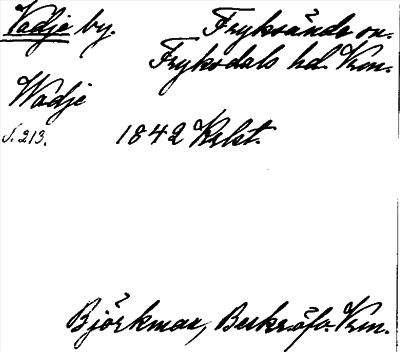 Vadje by. Fryksände sn.
Fryksdals hd. Vrm.
Wadje
S. 213. 1842 Krlst.
Björkman, Beskr.öfv. Vrm.